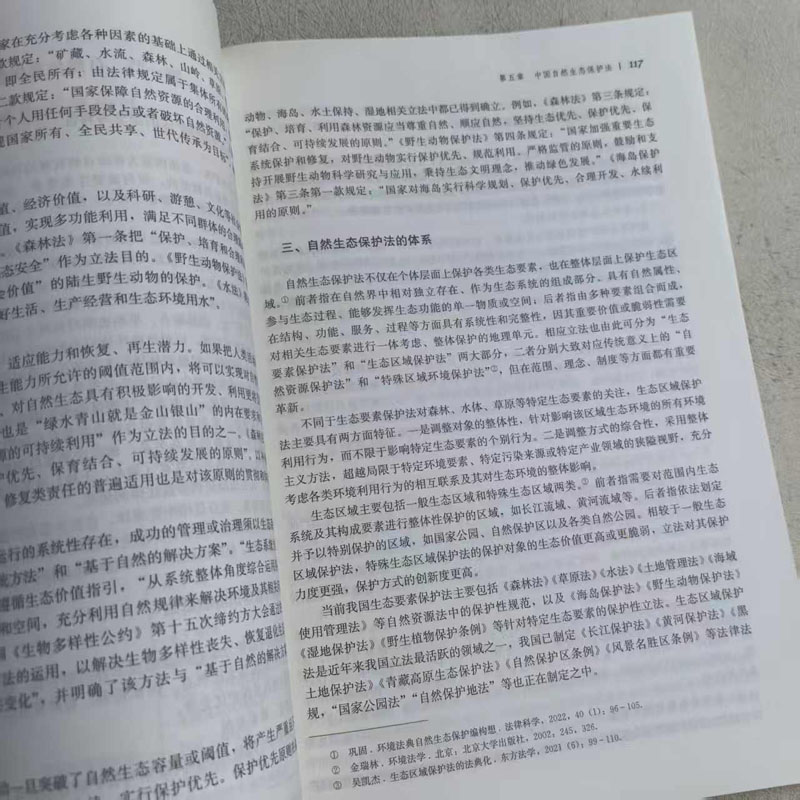 家在充分考虑各种因素的基础上通过相关
款规定：“矿藏、水流、森林、山岭、草原
即全民所有；由法律规定属于集体所有
二款规定：“国家保障自然资源的合理利用
个人用任何手段侵占或者破坏自然资源。
国家所有、全民共享、世代传承为目标
值、经济价值，以及科研、游憩、文化等
值，实现多功能利用，满足不同群体的合理
《森林法》第一条把“保护、培育和合理
态安全”作为立法目的。《野生动物保护法
会价值”的陆生野生动物的保护。《水法》
好生活、生产经营和生态环境用水”。
适应能力和恢复、再生潜力。如果把人类
生能力所允许的阈值范围内，将可以实现对
、对自然生态具有积极影响的开发、利用
也是“绿水青山就是金山银山”的内在要
源的可持续利用”作为立法目的之一，《森
户优先、保育结合、可持续发展的原则”，以
修复类责任的普遍适用也是对该原则的贯彻和
运行的系统性存在，成功的管理或治理须以生态
方法”和“基于自然的解决方案”。“生态系统
遵循生态价值指引，“从系统整体角度综合运用
和空间，充分利用自然规律来解决环境及其相关
《生物多样性公约》第十五次缔约方大会通过
法的运用，以解决生物多样性丧失、恢复退化
变化”，并明确了该方法与“基于自然的解决
一旦突破了自然生态容量或阈值，将产生严重
实行保护优先。保护优先原则
第五章 中国自然生态保护法 | 117
动物、海岛、水土保持、湿地相关立法中都已得到确立。例如，《森林法》第三条规定：
“保护、培育、利用森林资源应当尊重自然、顺应自然，坚持生态优先、保护优先、保
育结合、可持续发展的原则。”《野生动物保护法》第四条规定：“国家加强重要生态
系统保护和修复，对野生动物实行保护优先、规范利用、严格监管的原则，鼓励和支
持开展野生动物科学研究与应用，秉持生态文明理念，推动绿色发展。”《海岛保护
法》第三条第一款规定：“国家对海岛实行科学规划、保护优先、合理开发、永续利
用的原则。”
三、自然生态保护法的体系
自然生态保护法不仅在个体层面上保护各类生态要素，也在整体层面上保护生态区
域。① 前者指在自然界中相对独立存在、作为生态系统的组成部分、具有自然属性、
参与生态过程、能够发挥生态功能的单一物质或空间；后者指由多种要素组合而成，
在结构、功能、服务、过程等方面具有系统性和完整性，因其重要价值或脆弱性需要
对相关生态要素进行一体考虑、整体保护的地理单元。相应立法也由此可分为“生态
要素保护法”和“生态区域保护法”两大部分，二者分别大致对应传统意义上的“自
然资源保护法”和“特殊区域环境保护法”②，但在范围、理念、制度等方面都有重要
革新。
不同于生态要素保护法对森林、水体、草原等特定生态要素的关注，生态区域保护
法主要具有两方面特征。一是调整对象的整体性，针对影响该区域生态环境的所有环境
利用行为，而不限于影响特定生态要素的个别行为。二是调整方式的综合性，采用整体
主义方法，超越局限于特定环境要素、特定污染来源或特定产业领域的狭隘视野，充分
考虑各类环境利用行为的相互联系及其对生态环境的整体影响。
生态区域主要包括一般生态区域和特殊生态区域两类。③ 前者指需要对范围内生态
系统及其构成要素进行整体性保护的区域，如长江流域、黄河流域等。后者指依法划定
并予以特别保护的区域，如国家公园、自然保护区以及各类自然公园。相较于一般生态
区域保护法，特殊生态区域保护法的保护对象的生态价值更高或更脆弱，立法对其保护
力度更强，保护方式的创新度更高。
当前我国生态要素保护法主要包括《森林法》《草原法》《水法》《土地管理法》《海域
使用管理法》等自然资源法中的保护性规范，以及《海岛保护法》《野生动物保护法》
《湿地保护法》《野生植物保护条例》等针对特定生态要素的保护性立法。生态区域保护
法是近年来我国立法最活跃的领域之一，我国已制定《长江保护法》《黄河保护法》《黑
土地保护法》《青藏高原生态保护法》《自然保护区条例》《风景名胜区条例》等法律法
规，“国家公园法”“自然保护地法”等也正在制定之中。
① 巩固．环境法典自然生态保护编构想．法律科学，2022，40（1）：96-105.
② 金瑞林．环境法学．北京：北京大学出版社，2002：245，326.
③ 吴凯杰．生态区域保护法的法典化．东方法学，2021（6）：99-110.